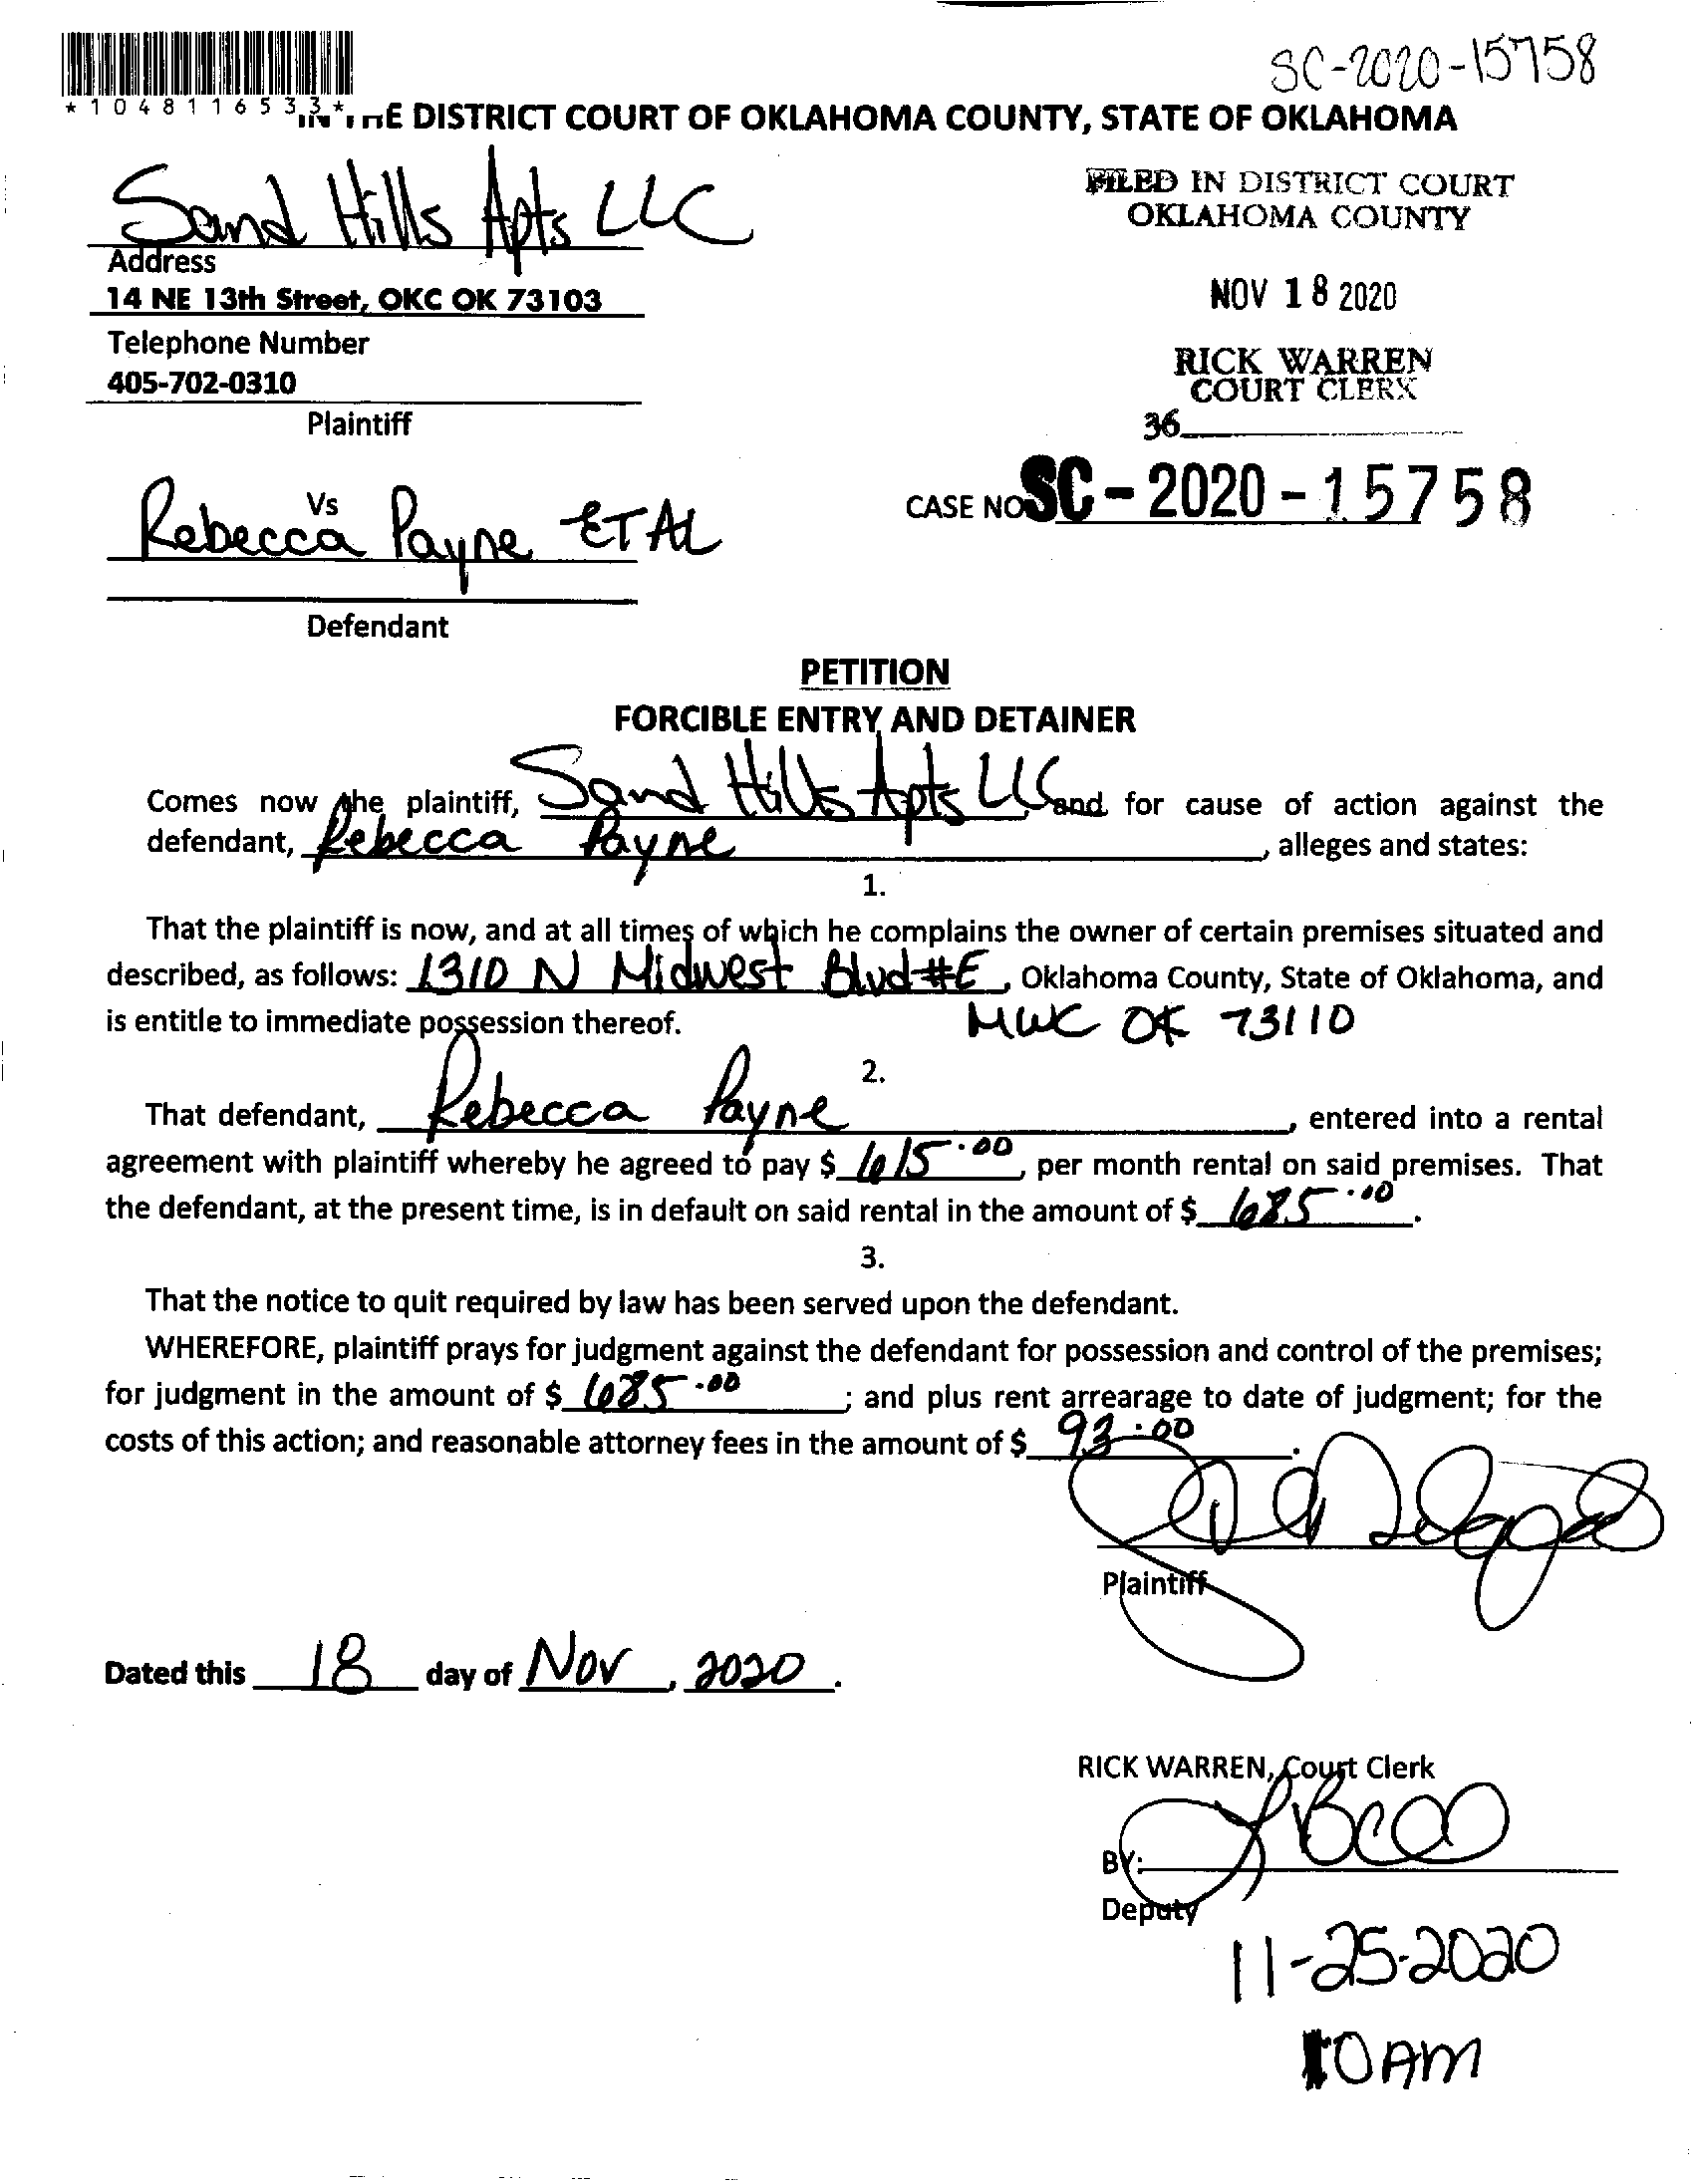 SC-2020-15758
*1048116533*
IN THE DISTRICT COURT OF OKLAHOMA COUNTY, STATE OF OKLAHOMA
Sand Hills Apts LLC
Address
14 NE 13th Street, OKC OK 73103
Telephone Number
405-702-0310
Plaintiff
FILED IN DISTRICT COURT
OKLAHOMA COUNTY
NOV 18 2020
RICK WARREN
COURT CLERK
36
CASE NO SC-2020-15758
Vs
Rebecca Payne ET AL
Defendant
PETITION
FORCIBLE ENTRY AND DETAINER
Comes now the plaintiff, Sand Hills Apts LLC and for cause of action against the
defendant, Rebecca Payne, alleges and states:
1.
That the plaintiff is now, and at all times of which he complains the owner of certain premises situated and
described, as follows: 1310 N Midwest Blvd #E, Oklahoma County, State of Oklahoma, and
is entitle to immediate possession thereof. MWC OK 73110
2.
That defendant, Rebecca Payne, entered into a rental
agreement with plaintiff whereby he agreed to pay $ 615.00, per month rental on said premises. That
the defendant, at the present time, is in default on said rental in the amount of $ 685.00.
3.
That the notice to quit required by law has been served upon the defendant.
WHEREFORE, plaintiff prays for judgment against the defendant for possession and control of the premises;
for judgment in the amount of $ 685.00; and plus rent arrearage to date of judgment; for the
costs of this action; and reasonable attorney fees in the amount of $ 93.00.
Plaintiff
Dated this 18 day of Nov, 2020.
RICK WARREN, Court Clerk
BY:
Deputy
11-25-2020
10 AM